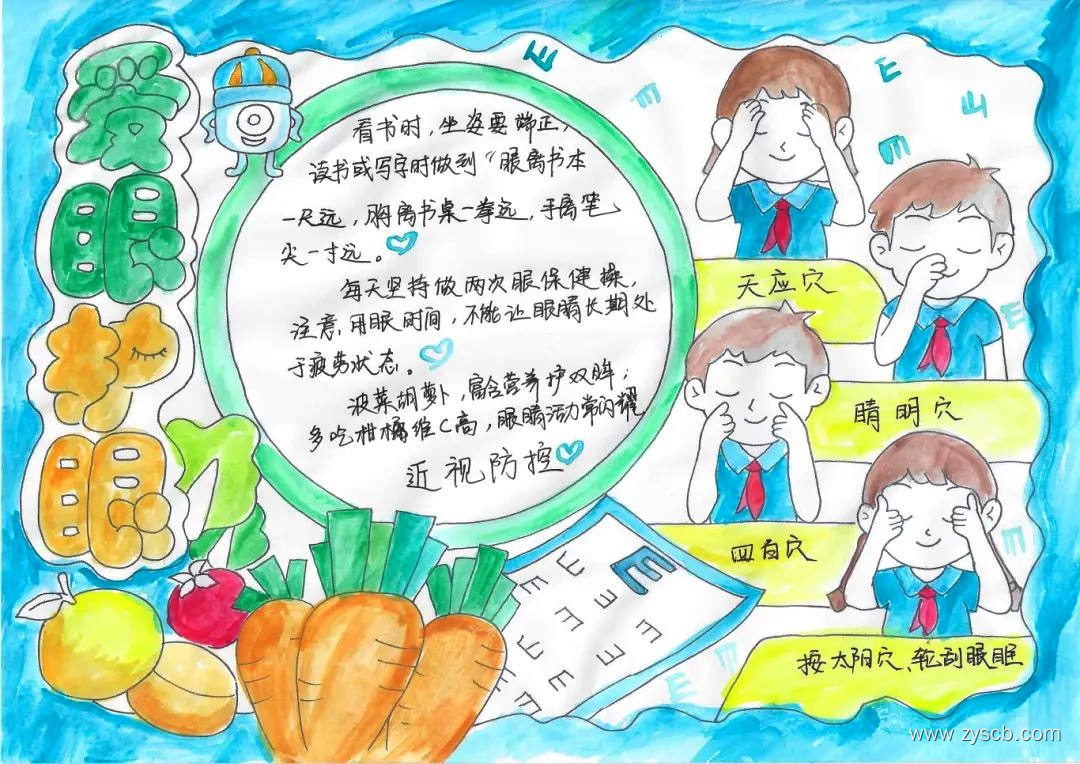 爱眼护眼
看书时，坐姿要端正，
读书或写字时做到“眼离书本
一尺远，胸离书桌一拳远，手离笔
尖一寸远。
每天坚持做两次眼保健操，
注意用眼时间，不能让眼睛长期处
于疲劳状态。
菠菜胡萝卜，富含营养护双眸；
多吃柑橘维C高，眼睛活力常闪耀
近视防控
天应穴
睛明穴
四白穴
按太阳穴、轮刮眼眶
E
E
E
E
E
E
E
E
E
E
www.zyscb.com